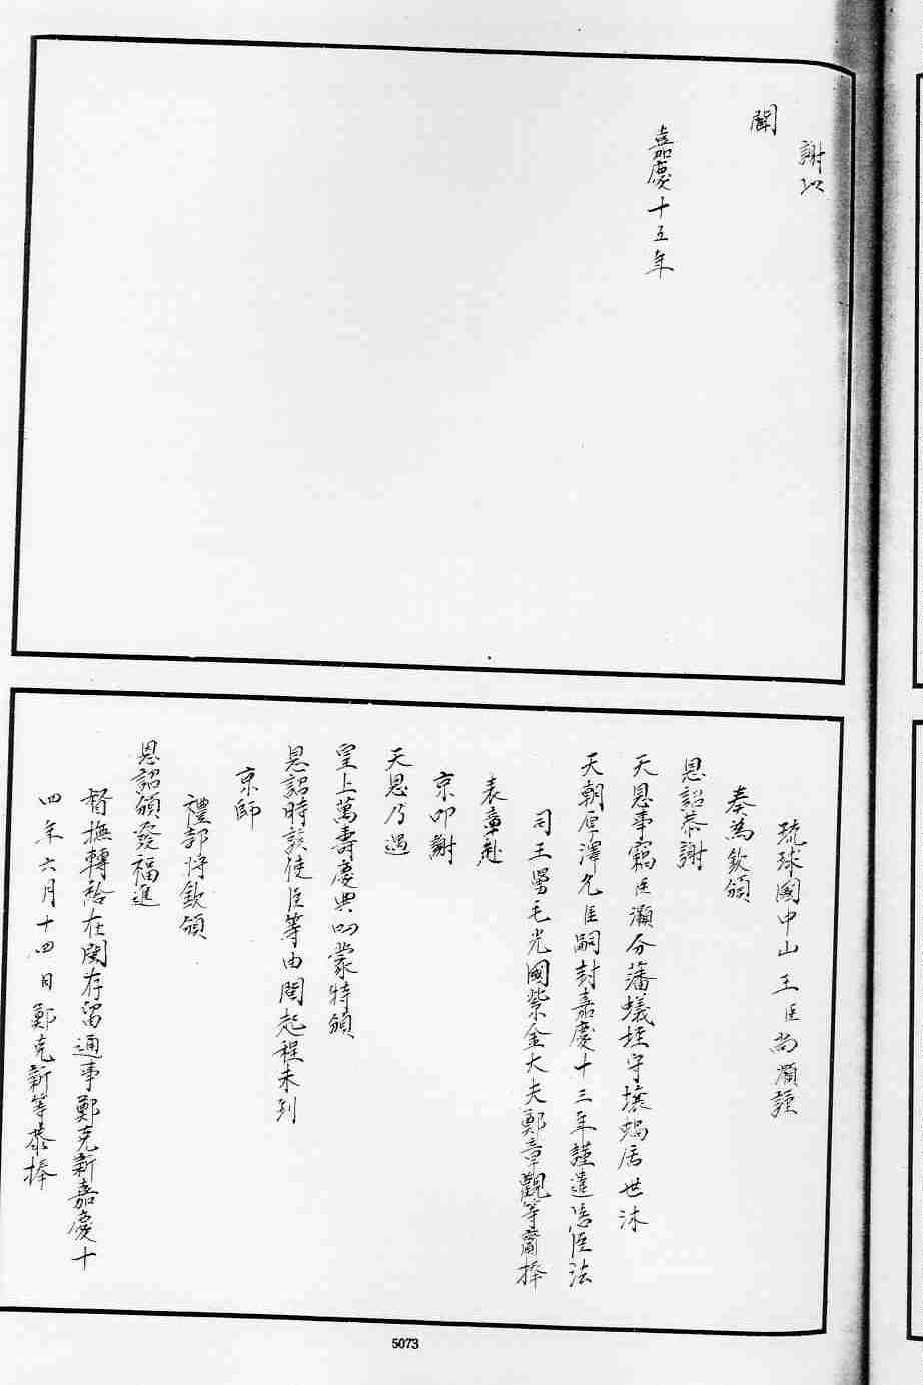 謝以
聞
嘉慶十五年
琉球國中山王臣尚灝謹
奏為欽頒
恩詔恭謝
天恩事竊臣灝分藩蟻垤守壤蝸居世沐
天朝厚澤允臣嗣封嘉慶十三年謹遣陪臣法
司王舅毛光國紫金大夫鄭章觀等齎捧
表章赴
京叩謝
天恩乃遇
皇上萬壽慶典叨蒙特頒
恩詔時該使臣等由閩起程未到
京師
禮部將欽頒
恩詔頒發福建
督撫轉給在閩存留通事鄭克新嘉慶十
四年六月十四日鄭克新等恭捧
5073